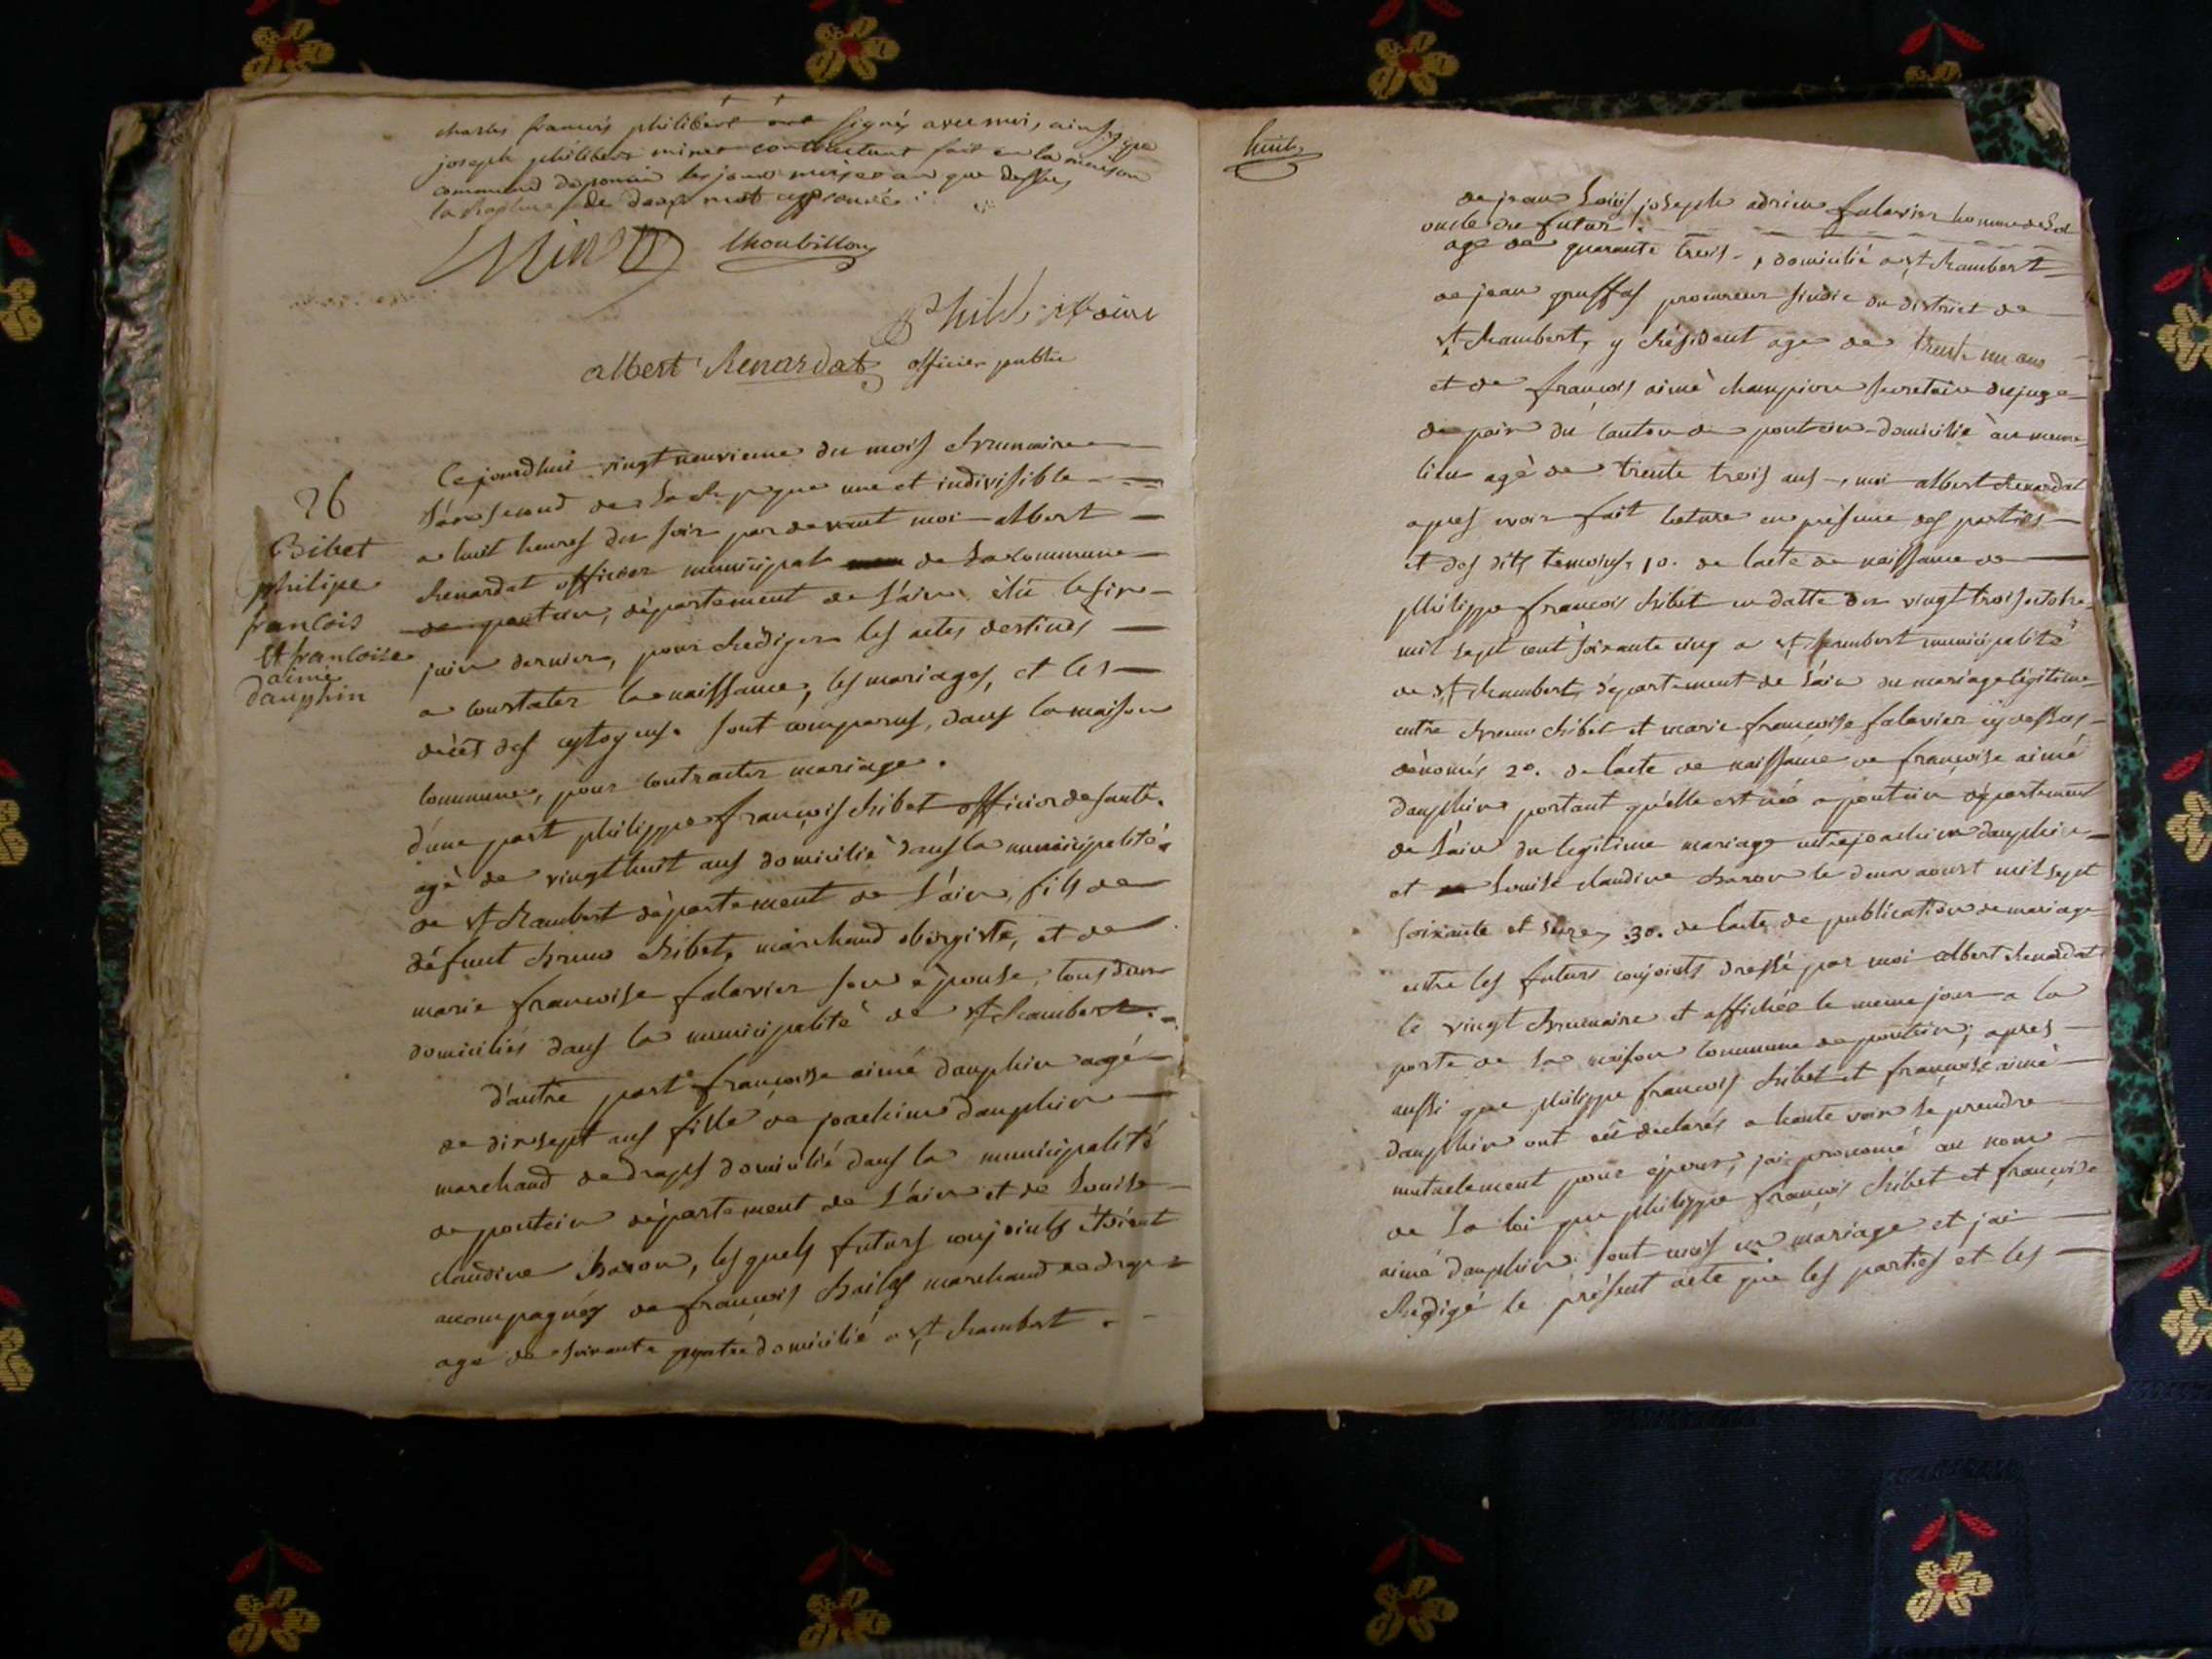 charles francois philibert ont signés avec moi, ainsy que
joseph philibert minet contractant fait en la maison
commune de poncin les jour mois et an que dessus
la rapture de deux mot approuvée.
Minet
albert Renardat officier public
26
Bibet
philipe
francois
et francoise
aimé
dauphin
Cejourdhui vingt neuvieme du mois Brumaire
l'an second de la Republique une et indivisible
a huit heures du soir pardevant moi albert
Renardat officier municipal de la commune
de pontein, département de l'ain élu le six
juin dernier, pour Rédiger les actes destinés
a constater la naissance, les mariages, et les
décès des cytoyens. sont comparus, dans la maison
commune, pour contracter mariage.
d'une part philippe francois Ribet officier de santé.
agé de vingt huit ans domicilié dans la municipalité
de st Rambert département de l'ain, fils de
défunt Bruno Ribet, marchand obergiste, et de
marie francoise falavier son épouse, tous deux
domiciliés dans la municipalité de st Rambert.
d'autre part francoise aimé dauphin agé
de dix sept ans fille de joachim dauphin
marchand de draps domicilié dans la municipalité
de pontein département de l'ain et de Louise
claudine Baron, lesquels futurs conjoints étoient
acompagnés de francois marchand de drap
agé de soixante quatre domicilié a st Rambert.
huit
de jean Louis joseph adrien falavier homme de Loi
oncle du futur.
agé de quarante trois, domicilié a st Rambert
de jean gruffaf procureur sindic du district de
st Rambert, y Résident agé de trente un ans
et de francois aimé champion secretaire du juge
de paix du canton de pontein domicilié au meme
lieu agé de trente trois ans, moi albert Renardat
apres avoir fait lecture en présence des parties
et des dits temoins, 1o. de lacte de naissance de
philippe francois Ribet en datte du vingt trois octobre
mil sept cent soixante cinq a st Rambert municipalité
de st Rambert, département de l'ain du mariage légitime
entre Bruno Ribet et marie francoise falavier cy dessus
dénomés 2o. de lacte de naissance de francoise aimé
dauphin portant qu'elle est née a pontein département
de l'ain du légitime mariage entre joachim dauphin
et Louise claudine Baron le deux aoust mil sept
soixante et seize, 3o. de lacte de publication de mariage
entre les futurs conjoints dressé par moi albert Renardat
le vingt Brumaire et affichée le meme jour a la
porte de la maison commune de pontein; apres
aussi que philippe francois Ribet et francoise aimé
dauphin ont eû déclarés a haute voix se prendre
mutuelement pour époux, jai prononcé au nom
de la loi que philippe francois Ribet et francoise
aimé dauphin sont unis en mariage et jai
Rédigé le présent acte que les parties et les